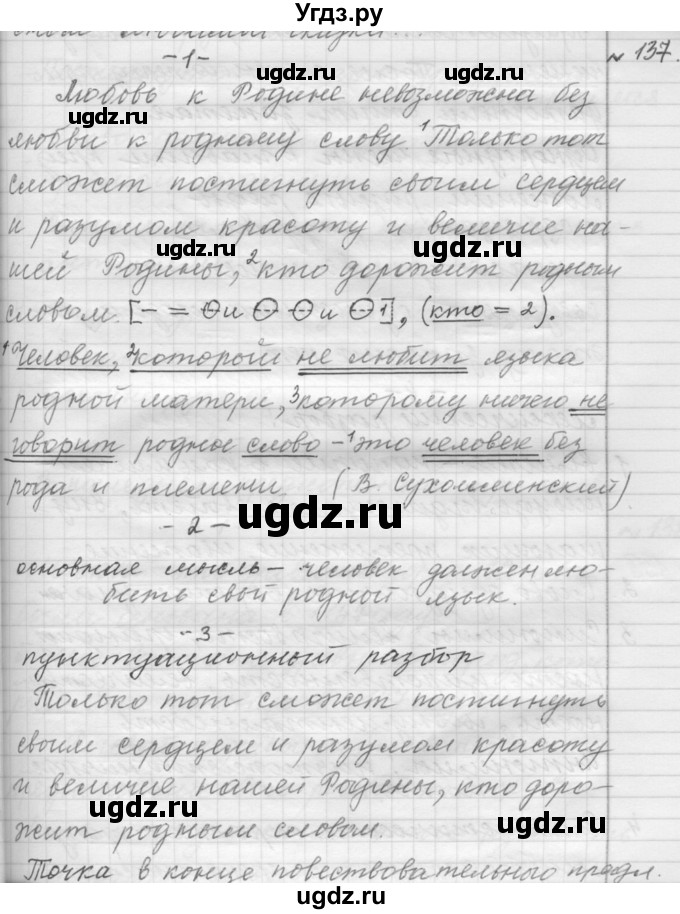 Угдз.ру
№ 137.
-1-
Любовь к Родине невозможна без
любви к родному слову. ¹Только тот
сможет постигнуть своим сердцем
и разумом красоту и величие на-
шей Родины, ²кто дорожит родным
словом. [– = ⊖ и ⊖ ⊖ и ⊖ 1], (кто = 2).
¹Человек, ²который не любит языка
родной матери, ³которому ничего не
говорит родное слово –¹это человек без
рода и племени. (В. Сухомлинский)
-2-
основная мысль – человек должен лю-
бить свой родной язык.
-3-
пунктуационный разбор
Только тот сможет постигнуть
своим сердцем и разумом красоту
и величие нашей Родины, кто доро-
жит родным словом.
Точка в конце повествовательного предл.
ugdz.ru
ugdz.ru
ugdz.ru
ugdz.ru
ugdz.ru
ugdz.ru
ugdz.ru
ugdz.ru
ugdz.ru
ugdz.ru
ugdz.ru